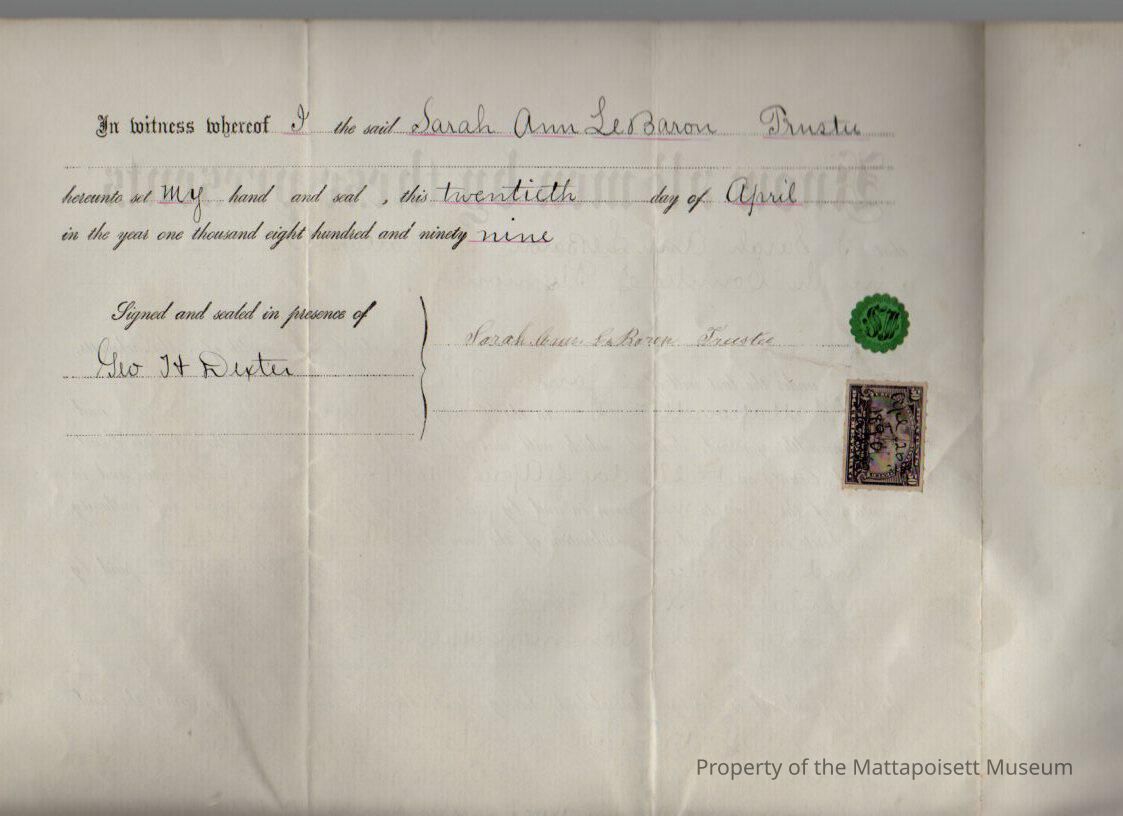 In witness whereof I the said Sarah Ann LeBaron Trustee
hereunto set my hand and seal, this twentieth day of April
in the year one thousand eight hundred and ninety nine
Signed and sealed in presence of
Geo H Dexter
Sarah Ann LeBaron Trustee
Property of the Mattapoisett Museum